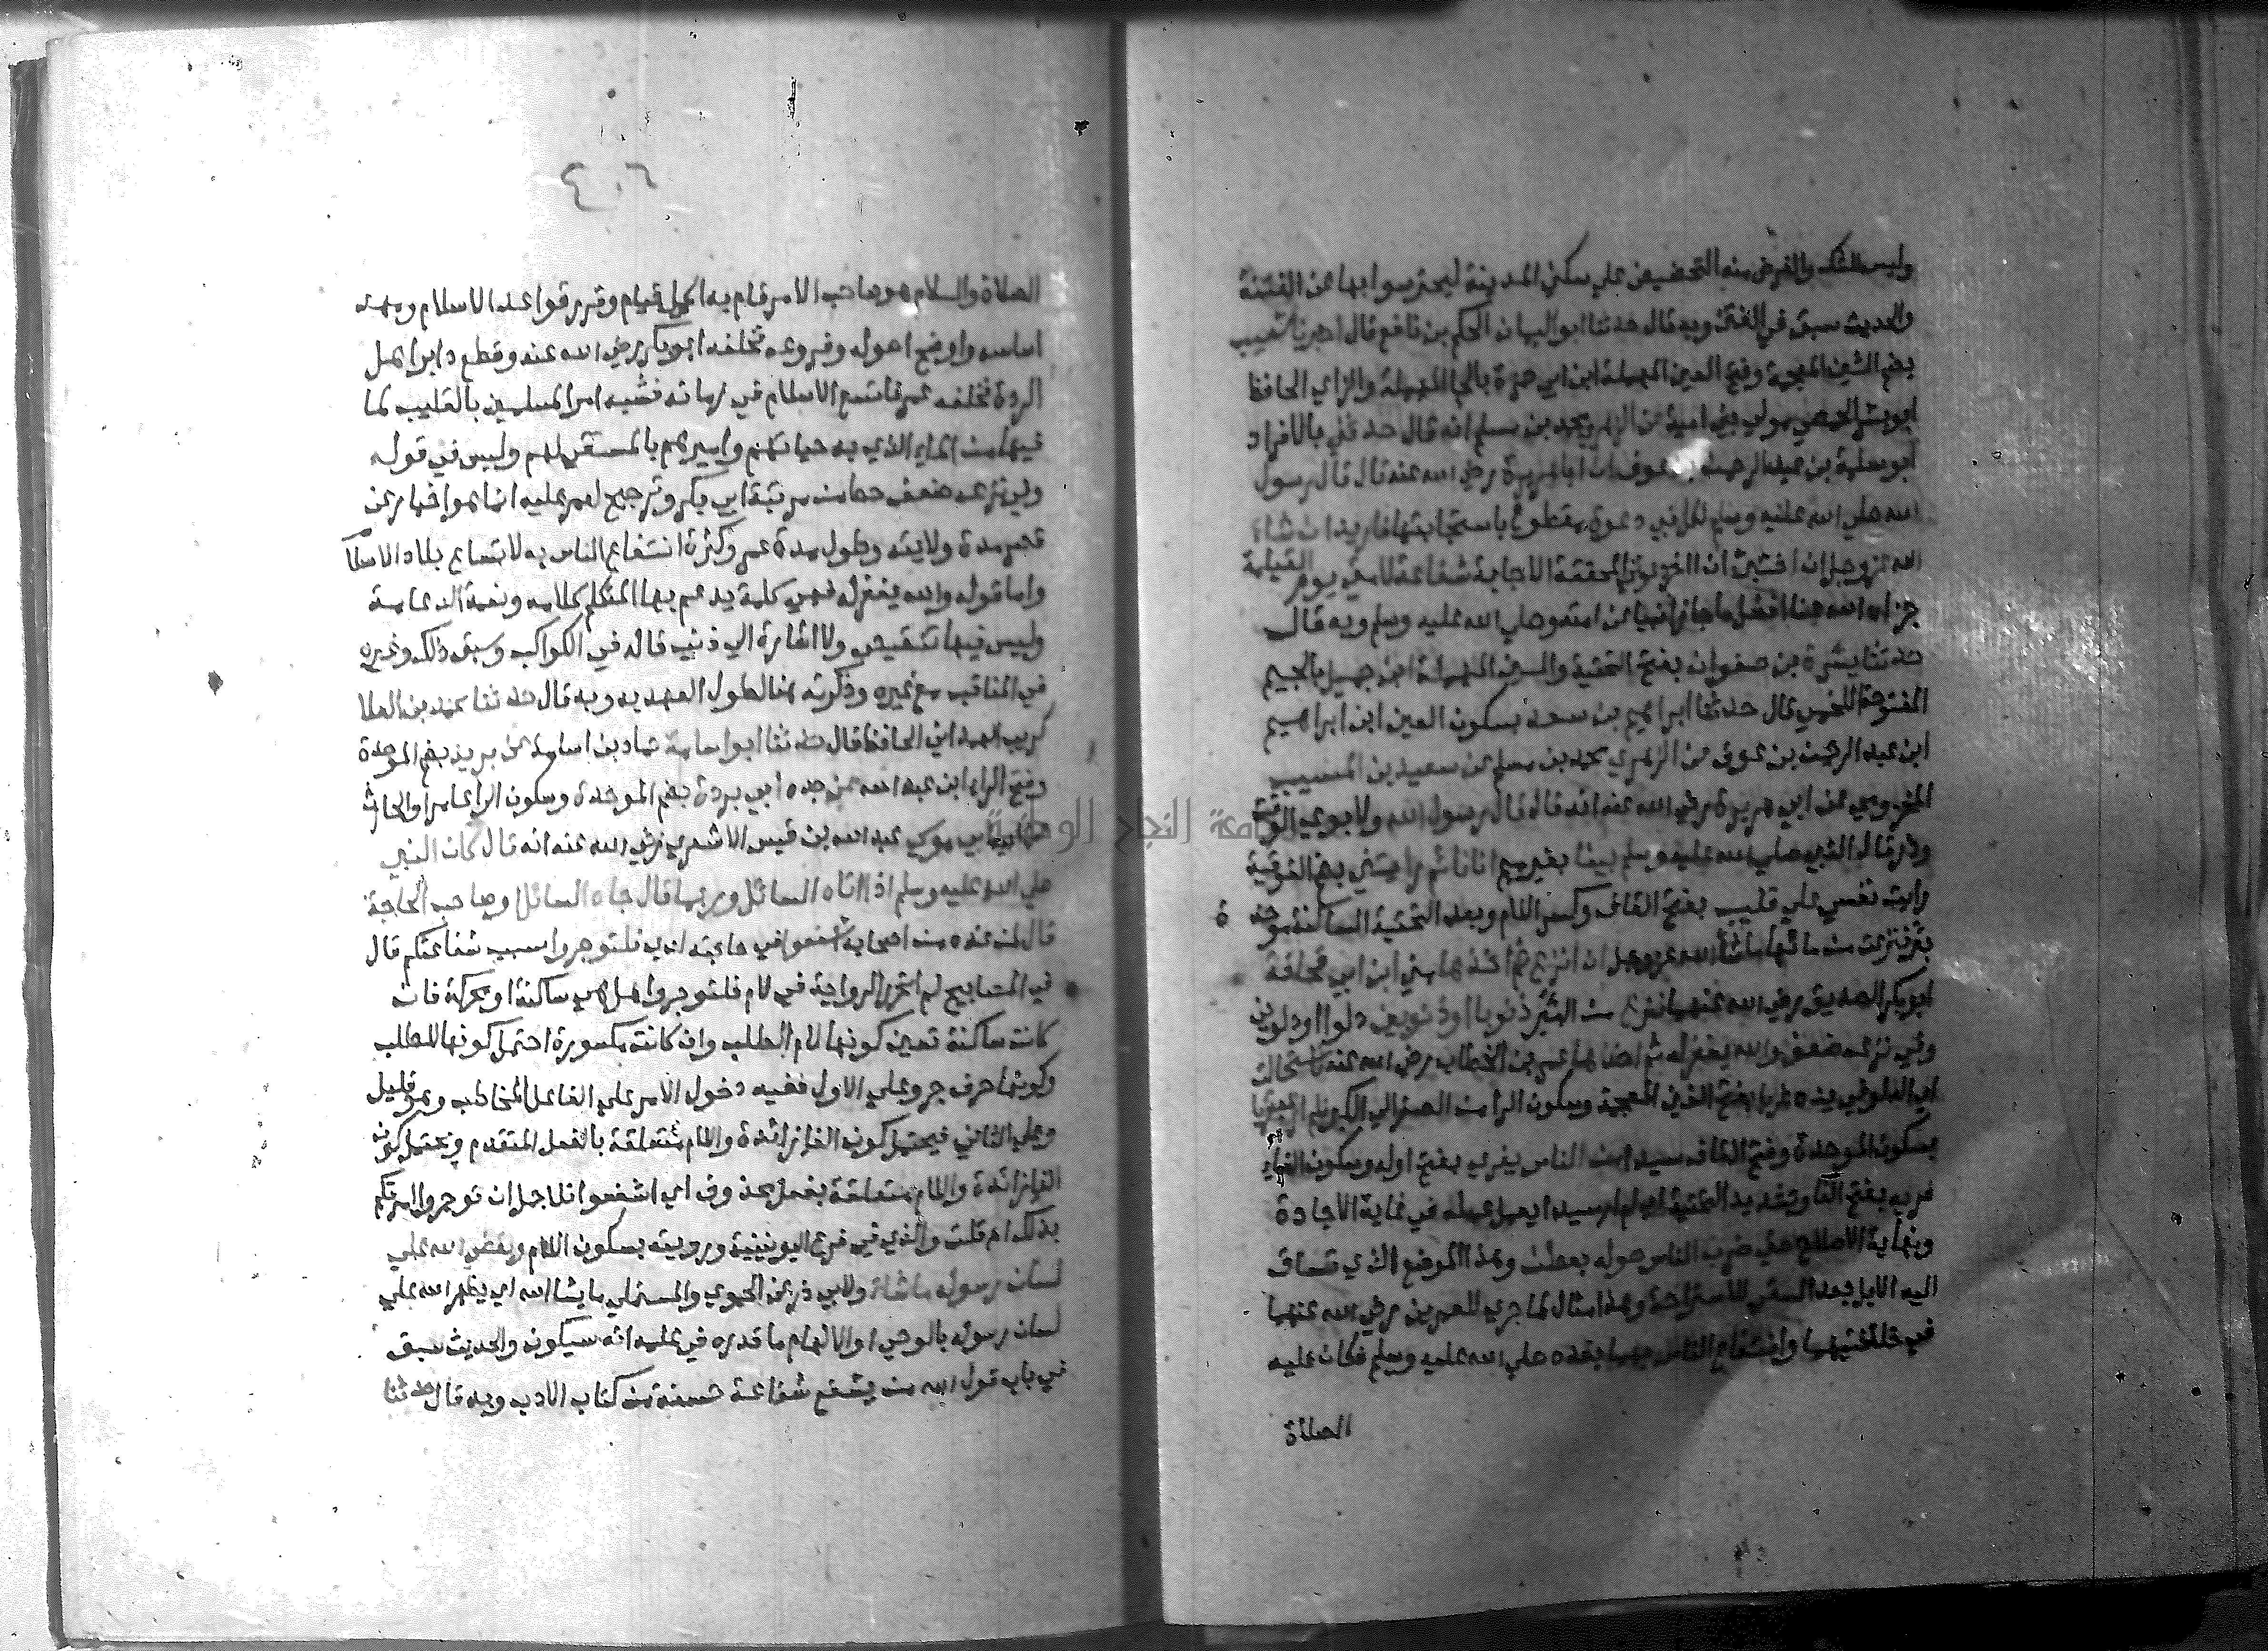 وليس للشك والغرض منه التحضيض علي سكني المدينة ليحترسوا بها من الفتنة
والحديث سبق في الفتن وبه قال حدثنا ابو اليمان الحكم بن نافع قال اخبرنا شعيب
بضم الشين المعجمة وفتح العين المهملة ابن ابي حمزة بالحا المهملة والزاي الحافظ
ابو بشر الحمصي مولي بني امية عن الزهري محمد بن مسلم انه قال حدثني بالافراد
ابو سلمة بن عبد الرحمن بن عوف ان ابا هريرة رضي الله عنه قال قال رسول
الله صلي الله عليه وسلم لكل نبي دعوة مقطوع باستجابتها فاريد ان شاء
الله عز وجل ان اختبئ ان ادخر دعوتي المحققة الاجابة شفاعة لامتي يوم القيامة
جزاه الله عنا افضل ما جازا نبيا عن امته وصلي الله عليه وسلم وبه قال
حدثنا يسرة بن صفوان بفتح التحتية والسين المهملة ابن جميل بالجيم
المفتوحة اللخمي قال حدثنا ابراهيم بن سعد بسكون العين ابن ابراهيم
ابن عبد الرحمن بن عوف عن الزهري محمد بن مسلم عن سعيد بن المسيب
المخزومي عن ابي هريرة رضي الله عنه انه قال قال رسول الله ولابوي الوقت
وذر قال النبي صلي الله عليه وسلم بينا بغير ميم انا نائم رايتني بضم الفوقية
رايت نفسي علي قليب بفتح القاف وكسر اللام وبعد التحتية الساكنة موحدة
بئر فنزعت من مائها ما شا الله عز وجل ان انزع ثم اخذها مني ابن ابي قحافة
ابو بكر الصديق رضي الله عنهما فنزع من البئر ذنوبا او ذنوبين دلوا او دلوين
وفي نزعه ضعف والله يغفر له ثم اخذها عمر بن الخطاب رضي الله عنه فاستحالت
اي الدلو في يده غربا بفتح الغين المعجمة وسكون الرا من الصغر الي الكبر فلم ار عبقريا
بسكون الموحدة وفتح القاف سيدا من الناس يفري بفتح اوله وسكون الفاء
فريه بفتح الفا وتشديد التحتية اي لم ار سيدا يعمل عمله في غاية الاجادة
ونهاية الاصلاح حتي ضرب الناس حوله بعطن وهذا الموضع الذي تساق
اليه الابل بعد السقي للاستراحة وهذا مثال لما جري للعمرين رضي الله عنهما
في خلافتهما وانتفاع الناس بهما بعده صلي الله عليه وسلم فكان عليه
الصلاة
٤٠٦
الصلاة والسلام هو صاحب الامر قام به اكمل قيام وقرر قواعد الاسلام ومهد
اساسه واوضح اصوله وفروعه فخلفه ابو بكر رضي الله عنه وقطع دابر اهل
الردة فخلفه عمر فاتسع الاسلام في زمانه فشبه امر المسلمين بالقليب لما
فيها من الماء الذي به حياتهم واميرهم بالمستقي لهم وليس في قوله
وفي نزعه ضعف حط من مرتبة ابي بكر وترجيح لعمر عليه انما هو اخبار عن
قصر مدة ولايته وطول مدة عمر وكثرة انتفاع الناس به لاتساع بلاد الاسلام
واما قوله والله يغفر له فهي كلمة يدعم بها المتكلم كلامه ونعمة الدعامة
وليس فيها تنقيص ولا اشارة الي ذنب قاله في الكواكب وسبق ذلك وغيره
في المناقب مع غيره وذكرته هنا لطول العهد به وبه قال حدثنا محمد بن العلا
كريب الهمداني الحافظ قال حدثنا ابو اسامة حماد بن اسامة عن بريد بضم الموحدة
وفتح الراء ابن عبد الله عن جده ابي بردة بضم الموحدة وسكون الرا عامر او الحارث
عن ابيه ابي موسي عبد الله بن قيس الاشعري رضي الله عنه انه قال كان النبي
صلي الله عليه وسلم اذا اتاه السائل وربما قال جاه السائل او صاحب الحاجة
قال لمن عنده من اصحابه اشفعوا في حاجته الي فلتوجروا بسبب شفاعتكم قال
في المصابيح لم اتحرر الرواية في لام فلتوجروا هل هي ساكنة او محركة فان
كانت ساكنة تعين كونها لام الطلب وان كانت مكسورة احتمل كونها للطلب
وكونها حرف جر وعلي الاول ففيه دخول الامر علي الفاعل المخاطب وهو قليل
وعلي الثاني فيحتمل كون الفا زائدة واللام متعلقة بالفعل المتقدم ويحتمل كون
الفا زائدة واللام متعلقة بفعل محذوف اي اشفعوا فلاجل ان توجروا امرتكم
بذلك اه قلت والذي في فرع اليونينية ورويته بسكون اللام ويقضي الله علي
لسان رسوله ما شاء ولابي ذر عن الحموي والمستملي ما يشا الله اي يظهر الله علي
لسان رسوله بالوحي او الالهام ما قدره في علمه انه سيكون والحديث سبق
في باب قول الله من يشفع شفاعة حسنة من كتاب الادب وبه قال حدثنا